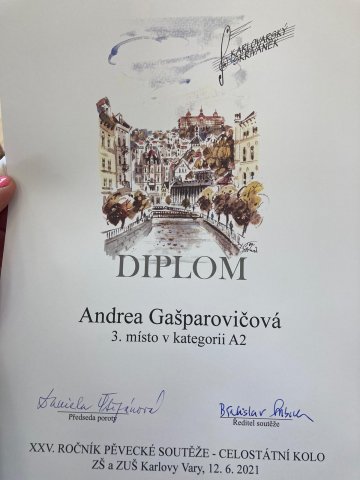 KARLOVARSKÝ
SKŘIVÁNEK
DIPLOM
Andrea Gašparovičová
3. místo v kategorii A2
Daniela
Předseda poroty
Ředitel soutěže
XXV. ROČNÍK PĚVECKÉ SOUTĚŽE - CELOSTÁTNÍ KOLO
ZŠ a ZUŠ Karlovy Vary, 12. 6. 2021